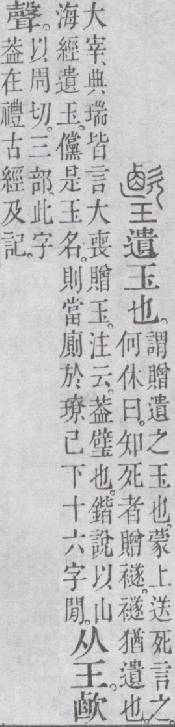 𤪎遺玉也。謂贈遺之玉也。蒙上送死言之。
何休曰。知死者贈襚。襚猶遺也。
大宰、典瑞皆言大喪贈玉。注云。葢璧也。鍇說以山
海經遺玉。儻是玉名。則當廁於璙已下十六字閒。从王。㰶
聲。以周切。三部。此字
葢在禮古經及記。